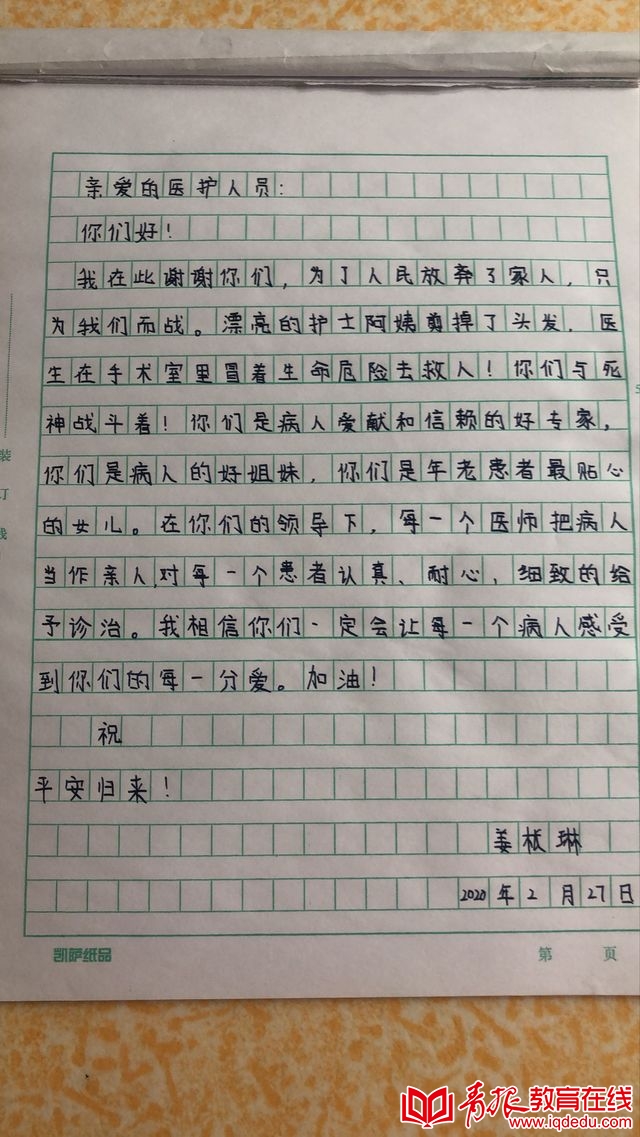 亲爱的医护人员:
你们好!
我在此谢谢你们,为了人民放弃了家人,只
为我们而战。漂亮的护士阿姨剪掉了头发.医
生在手术室里冒着生命危险去救人!你们与死
神战斗着!你们是病人爱献和信赖的好专家,
你们是病人的好姐妹,你们是年老患者最贴心
的女儿。在你们的领导下,每一个医师把病人
当作亲人,对每一个患者认真、耐心、细致的给
予诊治。我相信你们一定会让每一个病人感受
到你们的每一分爱。加油!
祝
平安归来!
姜 琳
2020年2月27日
装
订
线
凯萨纸品
第 页
青报教育在线
www.iqdedu.com